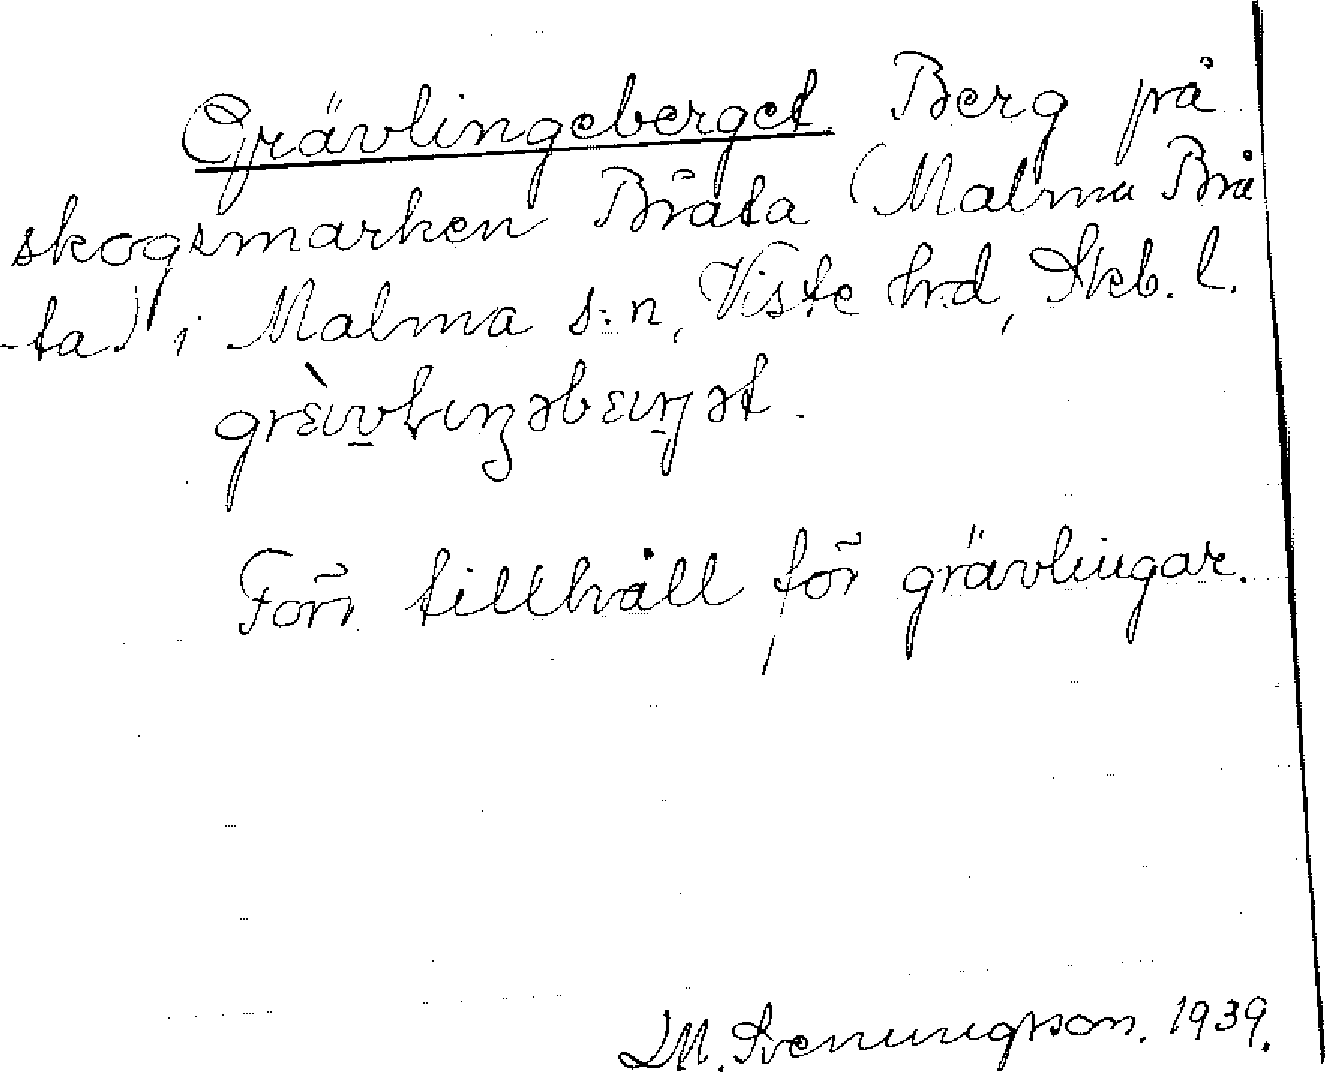 Grävlingeberget. Berg på
skogsmarken Bråta (Malma Brå
-ta) i Malma s:n, Viste hrd, Skb. l.
Förr tillhåll för grävlingar.
M. Svenungsson. 1939.